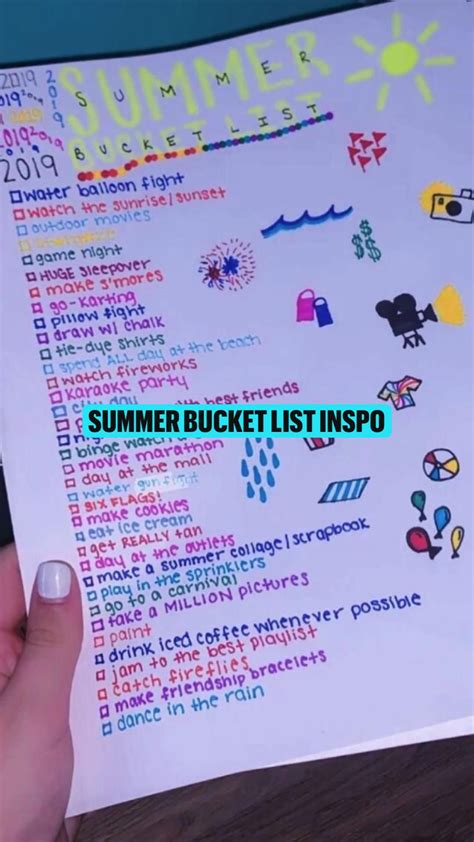 2019
2019
2019
2019
2019
SUMMER
SUMMER
BUCKET LIST
BUCKET LIST
water balloon fight
watch the sunrise/sunset
outdoor movies
game night
HUGE sleepover
make s'mores
go-karting
pillow fight
draw w/ chalk
tie-dye shirts
spend ALL day at the beach
watch fireworks
karaoke party
day
with best friends
SUMMER BUCKET LIST INSPO
binge watch a
movie marathon
day at the mall
water gun fight
SIX FLAGS!
make cookies
eat ice cream
get REALLY tan
day at the outlets
make a summer collage/scrapbook
play in the sprinklers
go to a carnival
take a MILLION pictures
paint
drink iced coffee whenever possible
jam to the best playlist
catch fireflies
make friendship bracelets
dance in the rain